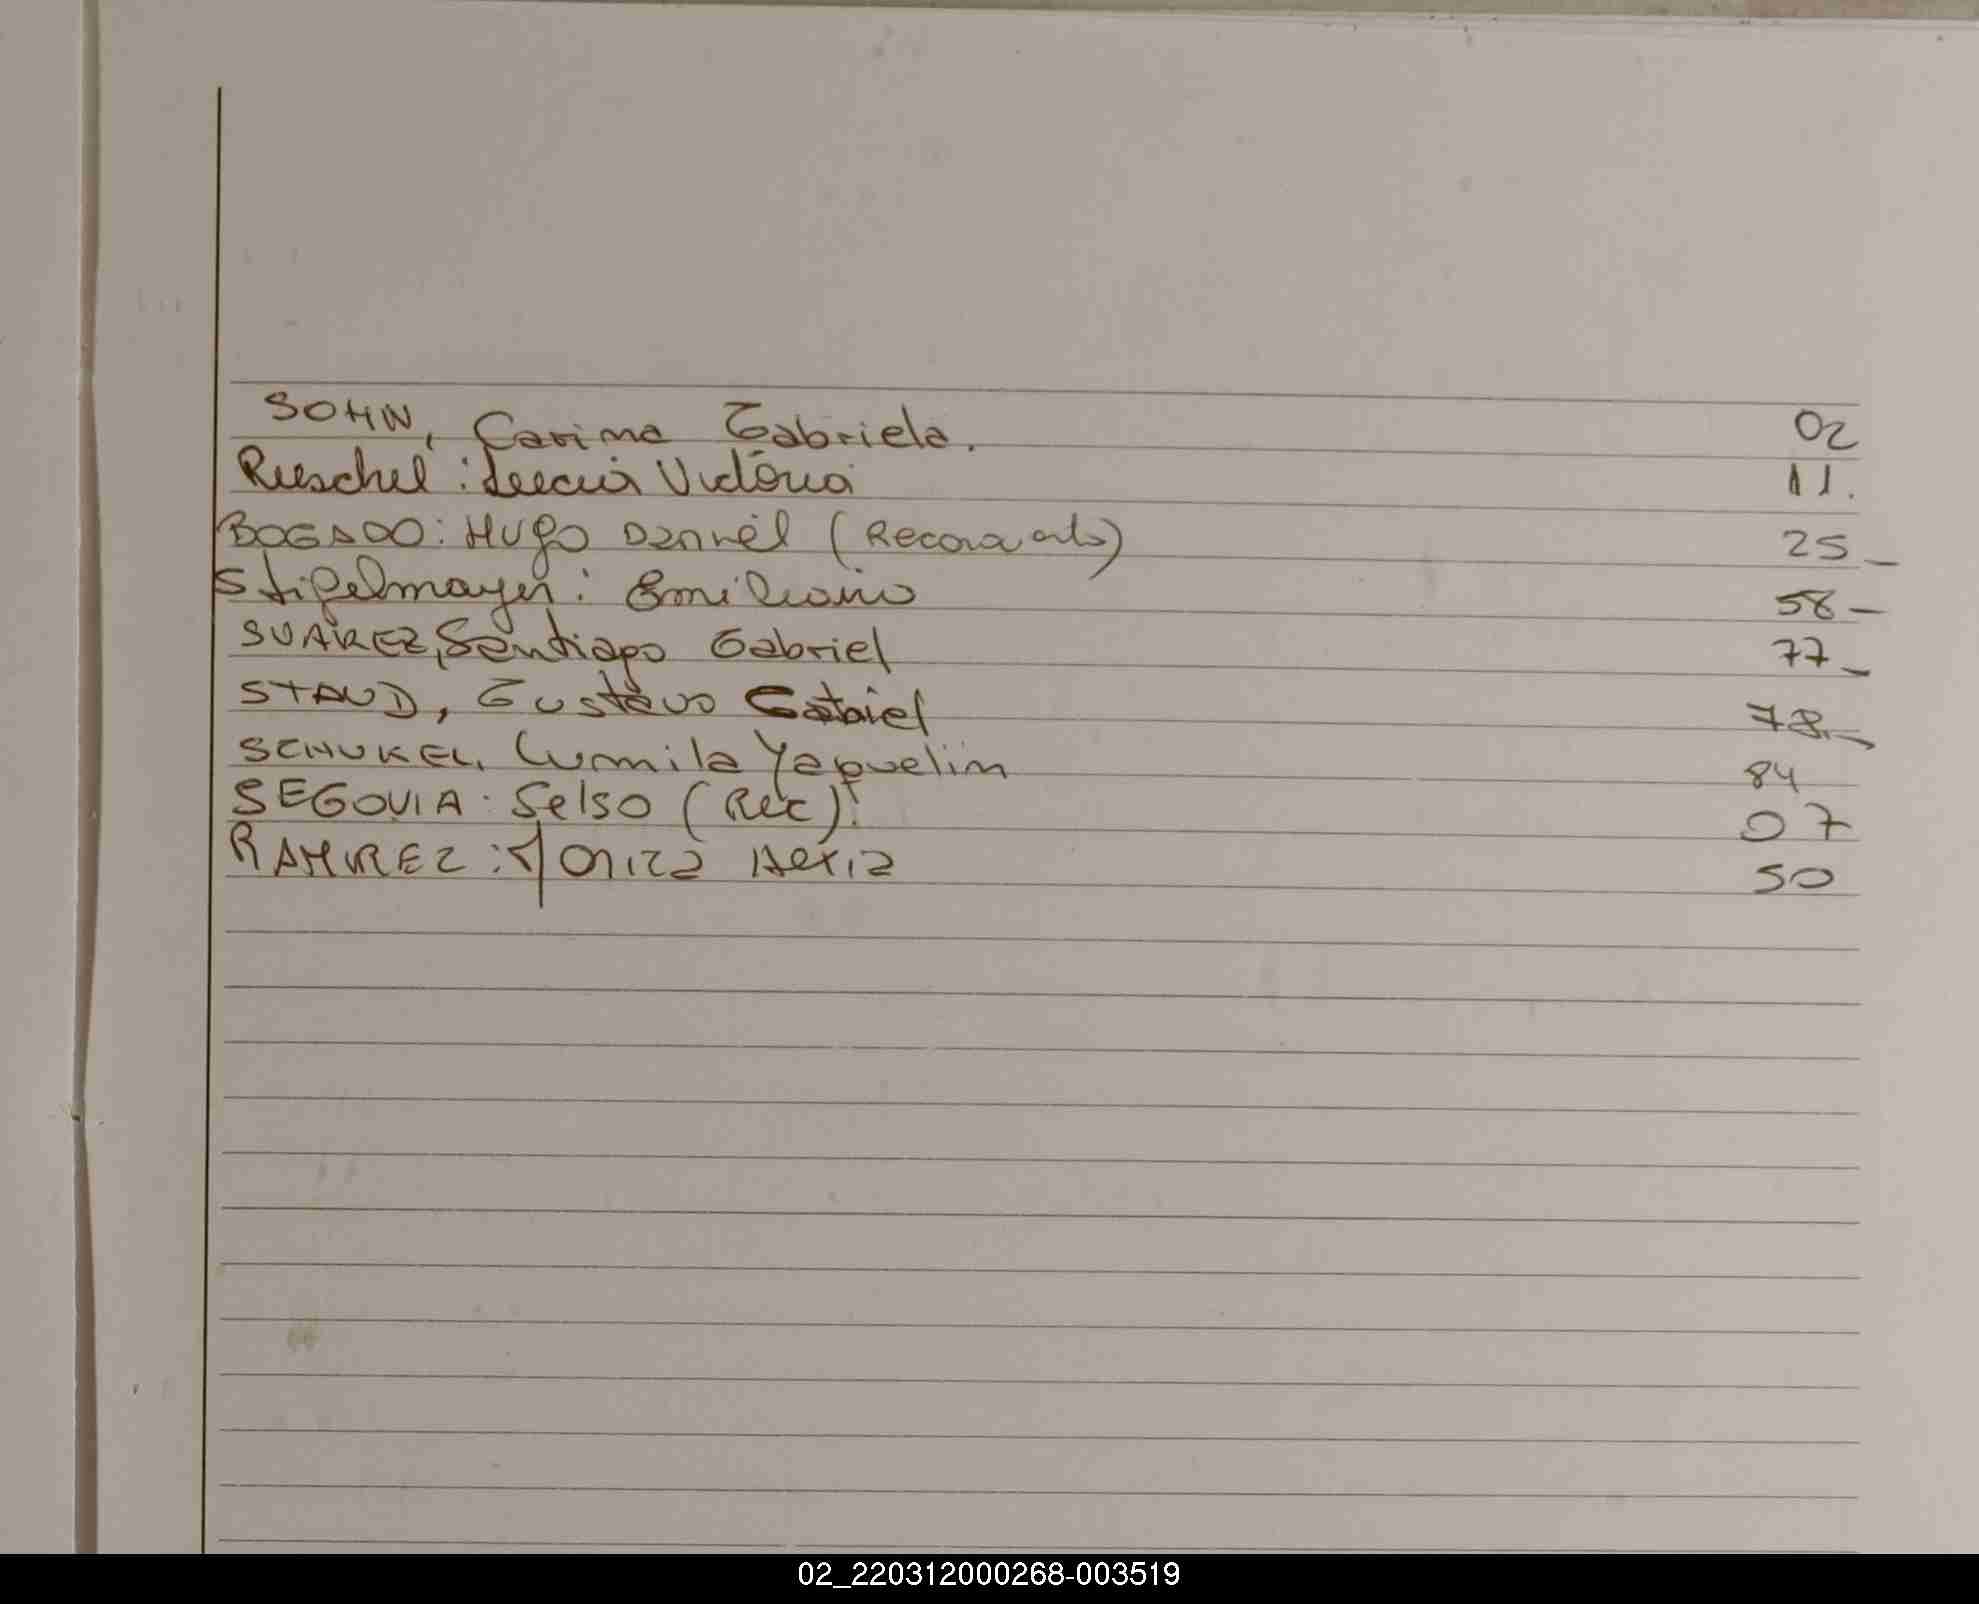 SOHN, Carima Gabriela. 02
Rieschel: Lucia Victoria 11.
BOGADO: Hugo Daniel (Reconocido) 25-
Stifelmayer: Emiliano 58-
SUAREZ, Santiago Gabriel 77-
STAUD, Gustavo Gabriel 78.-
SCHUKEL, Lumila Yaquelin 84
SEGOVIA: Selso (Rec). 07
RAMIREZ: Yonica Alexia 50
02_220312000268-003519